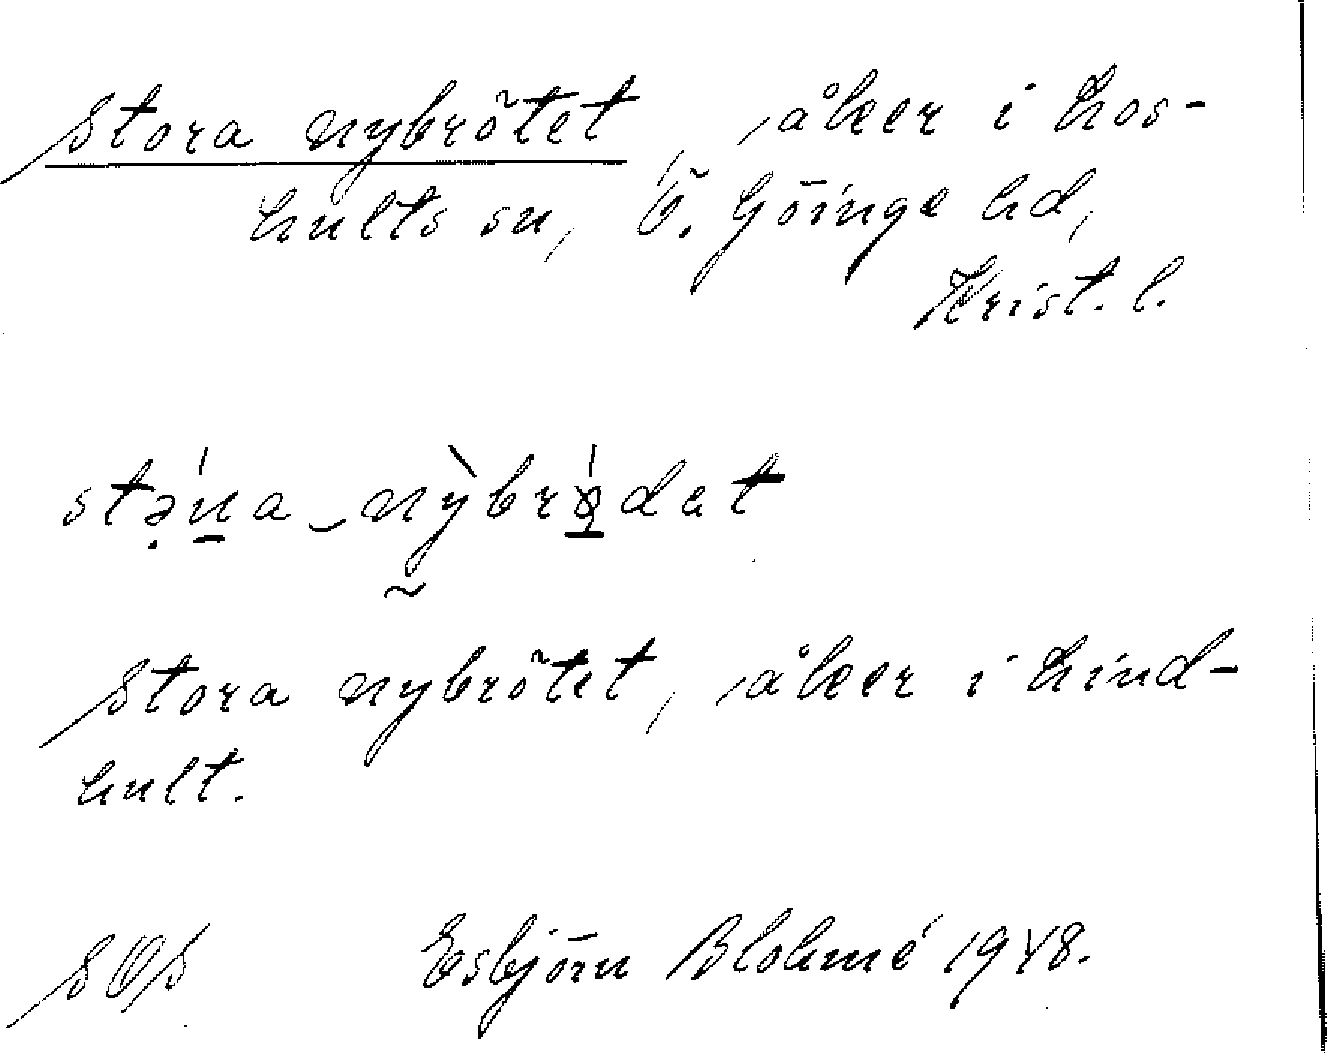 Stora nybrötet, åker i Loshults sn, Ö. Göinge hd,
Krist. l.
Stora nybrötet, åker i Hindhult.
SOS Esbjörn Blohmé 1948.